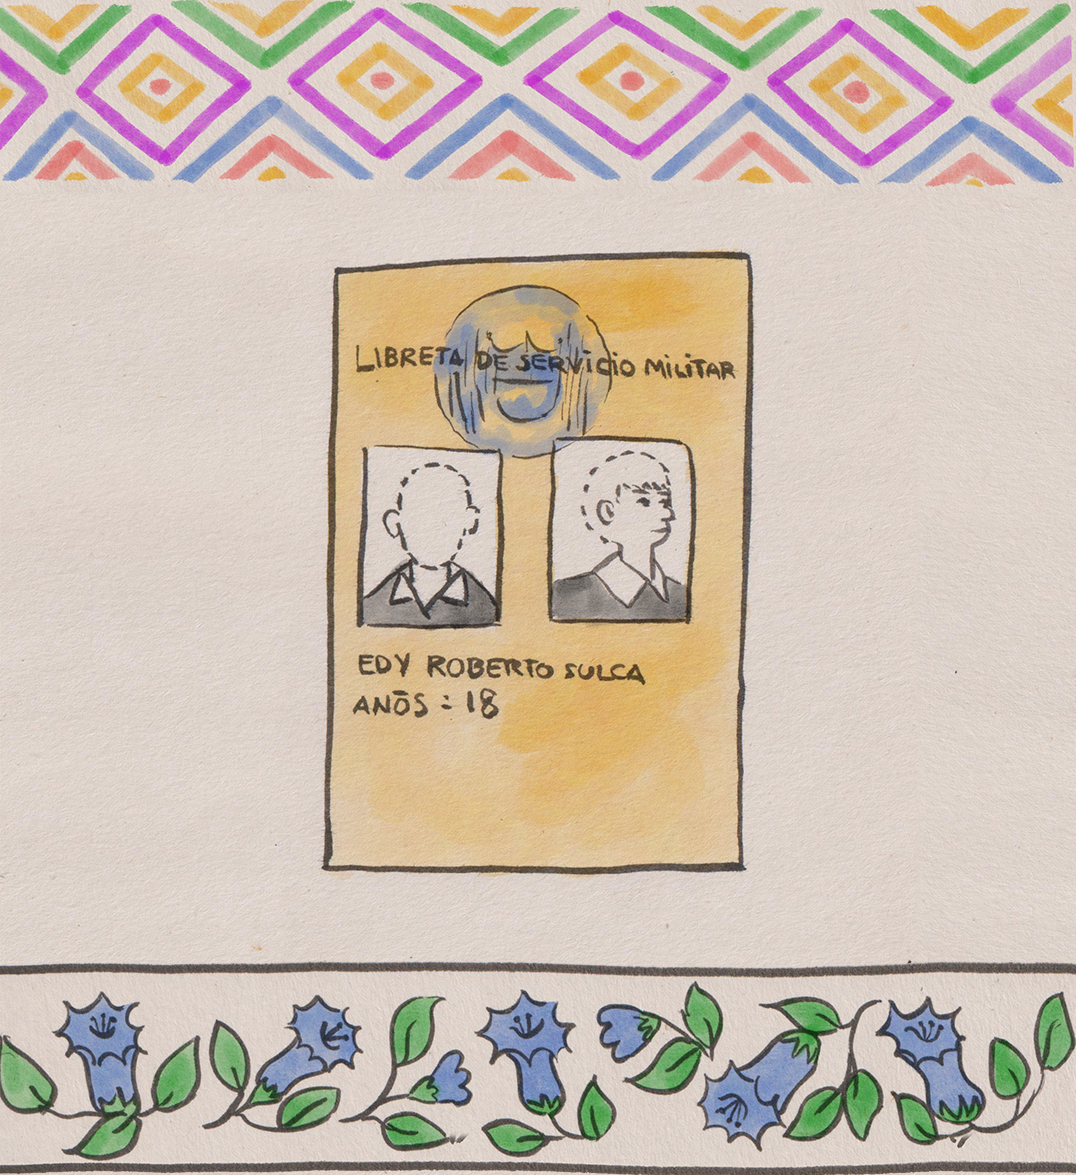 LIBRETA DE SERVICIO MILITAR
EDY ROBERTO SULCA
ANŌS : 18